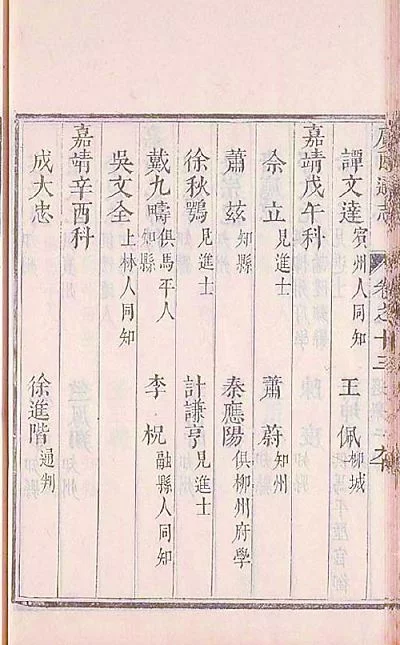 廣西通志 卷之十三 九
譚文達 賓州人同知 王佩 柳城
嘉靖戊午科
佘立 見進士 蕭蔚 知州
蕭兹 知縣 秦應陽 俱柳州府學
徐秋鶚 見進士 計謙亨 見進士
戴九疇 俱馬平人知縣 李柷 融縣人同知
吳文全 上林人同知
嘉靖辛酉科
成大忠 徐進階 通判